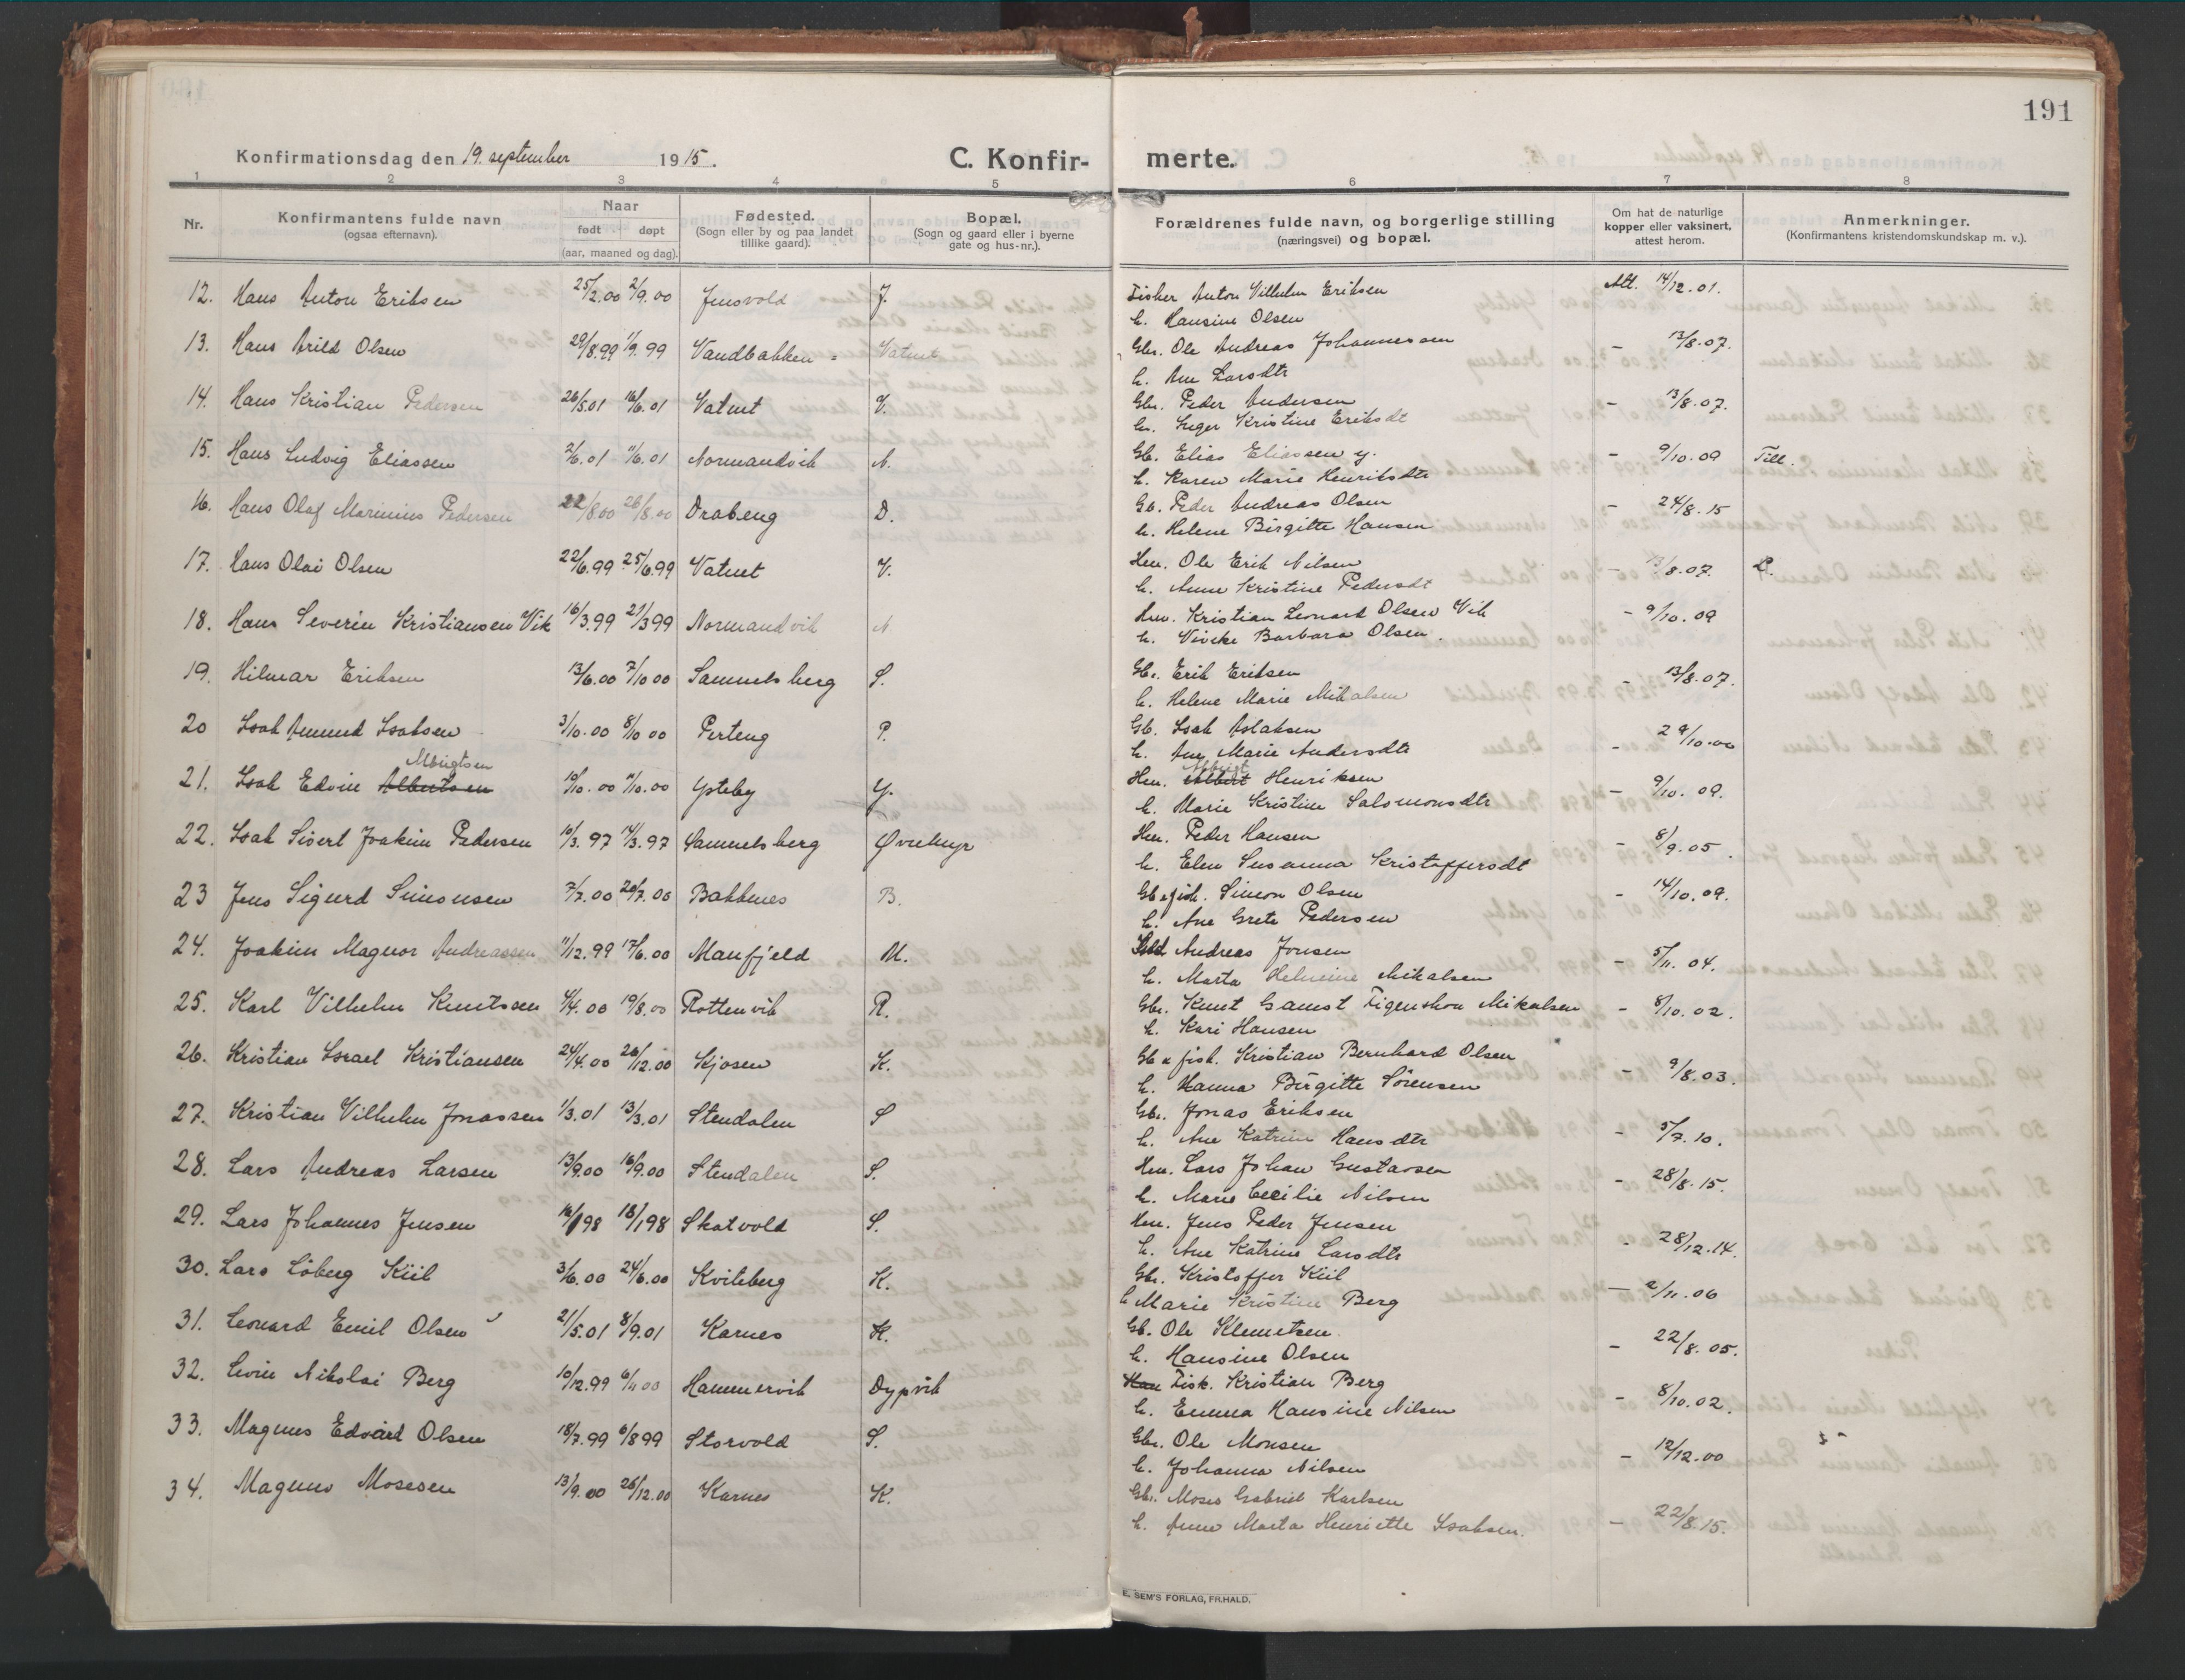 191
Konfirmationsdag den 19. september 1915.
C. Konfir-
merte.
1 2 3 4 5 6 7 8
Nr.
Konfirmantens fulde navn
(ogsaa efternavn).
Naar
født døpt
(aar, maaned og dag).
Fødested.
(Sogn eller by og paa landet
tillike gaard).
Bopæl.
(Sogn og gaard eller i byerne
gate og hus-nr.).
Forældrenes fulde navn, og borgerlige stilling
(næringsvei) og bopæl.
Om hat de naturlige
kopper eller vaksinert,
attest herom.
Anmerkninger.
(Konfirmantens kristendomskundskap m. v.).
12. Hans Anton Eriksen 25/2.00 2/9.00 Jensvold J. Fisker Anton Vilhelm Eriksen Att. 14/12.01.
h. Hansine Olsen
13. Hans Arild Olsen 29/8.99 1/9.99 Vandbakken = Vatnet Gbr. Ole Andreas Johannessen – 13/8.07.
h. Ane Larsdtr
14. Hans Kristian Pedersen 26/5.01 16/6.01 Vatnet V. Gbr. Peder Andersen – 13/8.07.
h. Inger Kristine Eriksdt
15. Hans Ludvig Eliassen 2/6.01 11/6.01 Normandvik N. Gb. Elias Eliassen y. – 9/10.09 Till.
h. Karen Marie Henriksdtr
16. Hans Olaf Marinius Pedersen 22/8.00 26/8.00 Drabeng D. Gb. Peder Andreas Olsen – 24/8.15
h. Helene Birgitte Hansen
17. Hans Olai Olsen 22/6.99 25/6.99 Vatnet V. Hm. Ole Erik Nilsen – 13/8.07.
h. Anne Kristine Pedersdt
18. Hans Severin Kristiansen Vik 16/3.99 21/3 99 Normandvik N Hm. Kristian Leonard Olsen Vik – 9/10.09
h. Viveke Barbara Olsen.
19. Hilmar Eriksen 13/6.00 7/10 00 Samuelsberg S. Gb. Erik Eriksen – 13/8.07.
h. Helene Marie Mikalsen
20 Isak Amund Isaksen 3/10.00 8/10 00 Perteng P. Gb. Isak Aslaksen – 29/10.00
h. Ane Marie Andersdtr
21. Isak Edvin Albertsen 10/10.00 11/10.00 Ysteby Y. Hm. Albert Henriksen – 9/10.09.
h. Marie Kristine Salomonsdtr
22. Isak Sivert Joakim Pedersen 10/3.97 14/3.97 Samuelsberg Øvremyr Hm. Peder Hansen – 8/9.05.
h. Elen Susanna Kristoffersdt
23 Jens Sigurd Simonsen 7/7.00 20/7.00 Bakkenes B. Gb & fisk. Simon Olsen – 14/10.09.
h. Ane Grete Pedersen
24. Joakim Magnor Andreassen 11/12.99 17/6.00 Manfjeld M. Andreas Jonsen – 5/11.04.
h. Marta Helmine Mikalsen
25. Karl Vilhelm Knutsen 4/4.00 19/8.00 Rottenvik R. Gbr. Knut Gamst Figenshou Mikalsen – 8/10.02.
h. Kari Hansen
26. Kristian Israel Kristiansen 24/4.00 26/12.00 Kjosen K. Gb & fisk. Kristian Bernhard Olsen – 9/8.03.
h. Hanna Birgitte Sörensen
27. Kristian Vilhelm Jonassen 1/3.01 13/3.01 Stendalen S Gbr. Jonas Eriksen – 5/7.10.
h. Ane Katrine Hansdtr
28. Lars Andreas Larsen 13/9.00 16/9.00 Stendalen S. Hm. Lars Johan Gustavsen – 28/8.15.
h. Marie Cecilie Nilsen
29. Lars Johannes Jensen 16/1 98 18/1 98 Skatvold S. Hm. Jens Peder Jensen – 28/12.14.
h. Ane Katrine Larsdtr
30. Lars Löberg Kiil 3/6.00 24/6.00 Kviteberg K. Gbr. Kristoffer Kiil – 2/11.06
h Marie Kristine Berg
31. Leonard Emil Olsen 21/5.01 8/9.01 Karnes K. Gb. Ole Klemetsen – 22/8.05.
h. Hansine Olsen
32. Levin Nikolai Berg 10/12.99 6/11 00 Hammervik Dypvik Fisk. Kristian Berg – 8/10.02.
h. Emma Hansine Nilsen
33. Magnus Edvard Olsen 18/7.99 6/8 99 Storvold S. Gbr. Ole Monsen – 12/12.00
h. Johanna Nilsen
34. Magnus Mosesen 13/9.00 26/12.00 Karnes K. Gbr. Moses Gabriel Karlsen – 22/8.15.
h. Anne Marta Henriette Isaksen.
E. SEM'S FORLAG, FR.HALD.